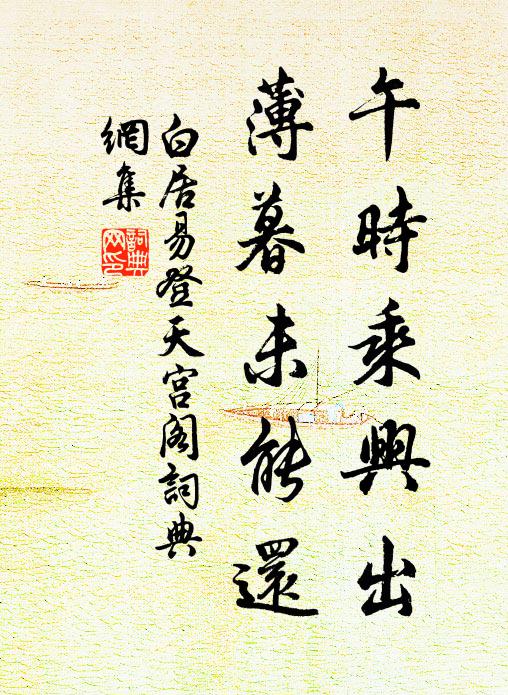 午時乘興出
薄暮未能還
白居易登天宮閣詞典
網集
詞典
网印